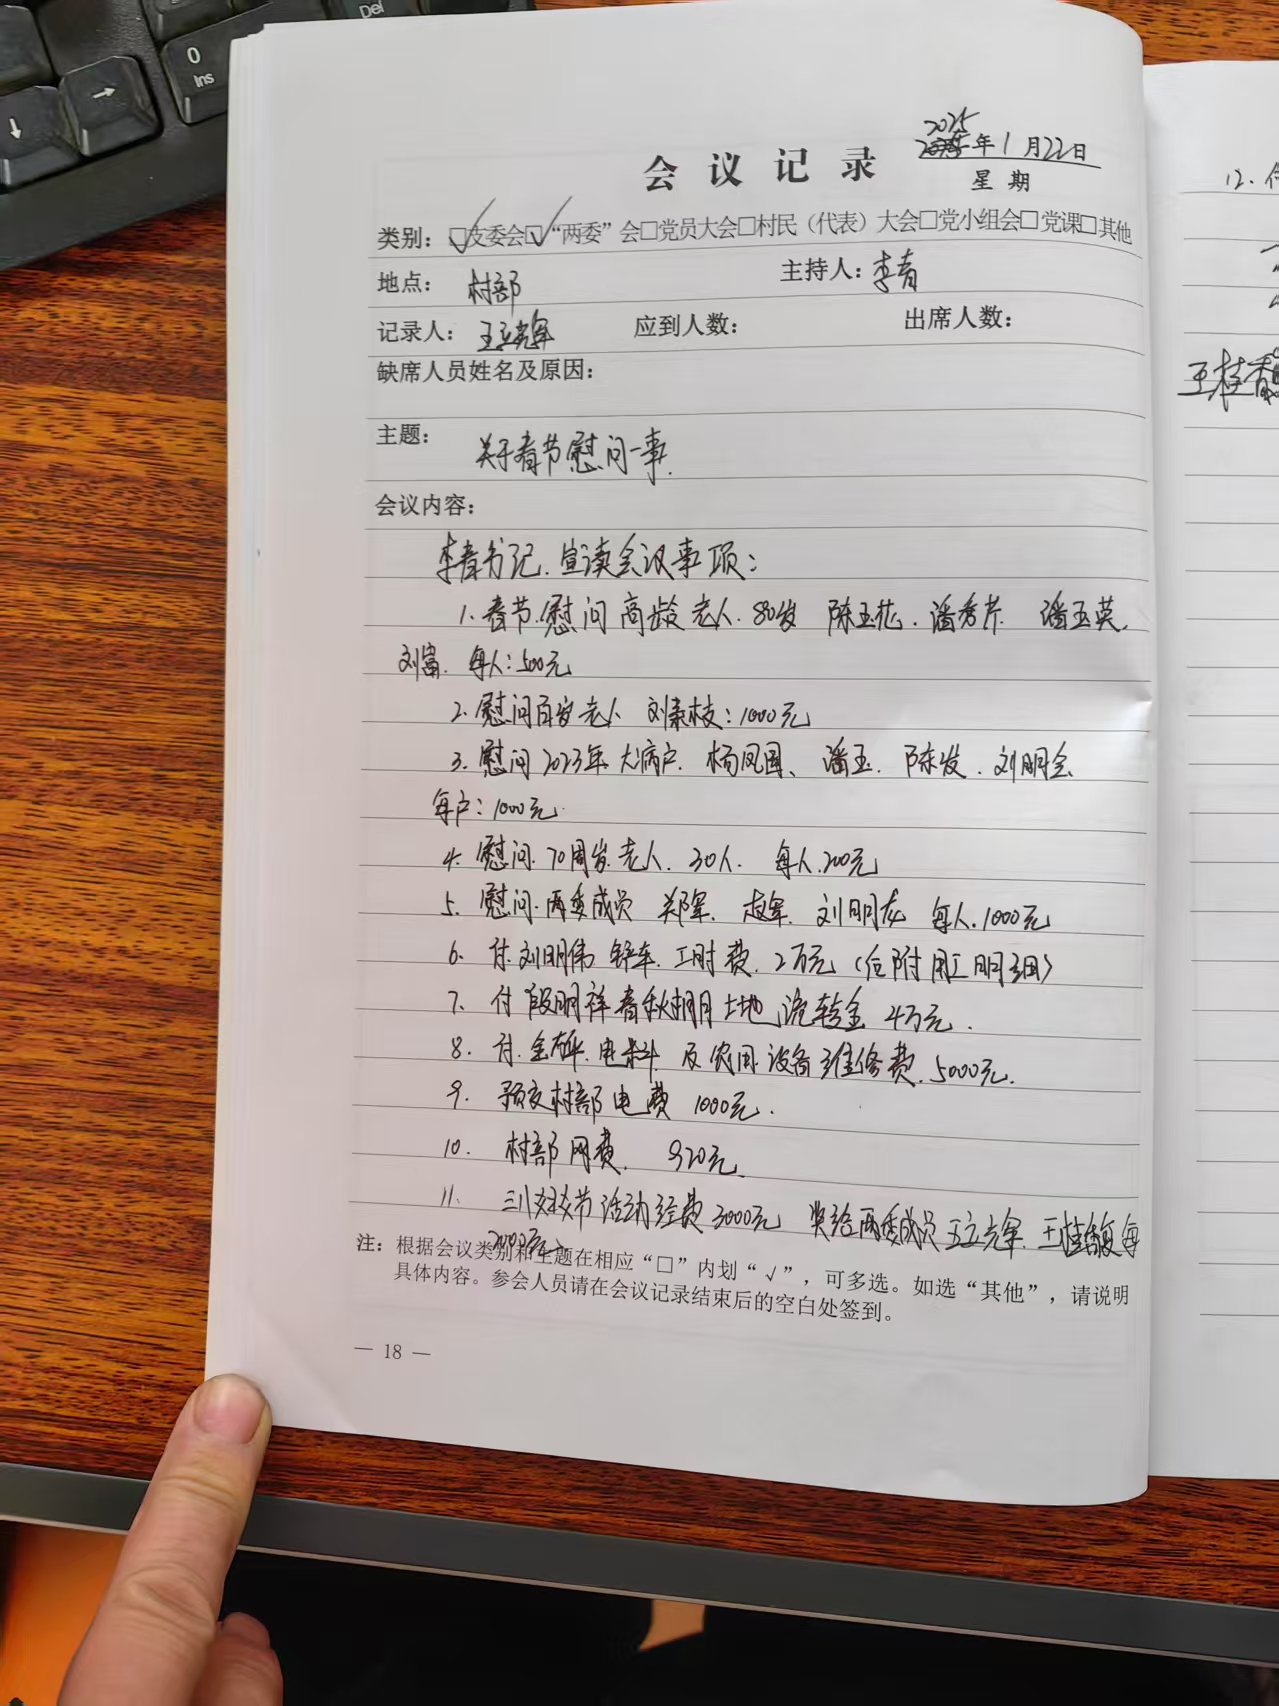 Del
0
Ins
2025
年1月22日
会议记录
星期
类别：☑支委会☑“两委”会□党员大会□村民（代表）大会□党小组会□党课□其他
地点： 村部 主持人：李春
记录人： 王立辉 应到人数： 出席人数：
缺席人员姓名及原因：
主题： 关于春节慰问一事.
会议内容：
李春书记.宣读会议事项：
1.春节.慰问高龄老人.80岁 陈玉花.潘秀芹 潘玉英.
刘富. 每人：500元
2.慰问百岁老人 刘素枝：1000元
3.慰问2023年大病户.杨凤国、潘玉.陈发.刘明全
每户：1000元.
4.慰问.70周岁.老人.30人. 每人.200元
5.慰问.两委成员 郑军. 志军. 刘明友 每人.1000元
6.付.刘明伟 铲车.工时费.2万元（后附用工明细）
7.付段明祥春秋期土地流转金 4万元.
8.付.全年.电料 及农田设备维修费.5000元.
9.预交村部电费 1000元.
10.村部网费. 920元.
11.三八妇女节活动经费3000元 奖给两委成员王立辉.王桂馥每
2000元
注：根据会议类别和主题在相应“□”内划“√”，可多选。如选“其他”，请说明
具体内容。参会人员请在会议记录结束后的空白处签到。
— 18 —
12.
王桂馥